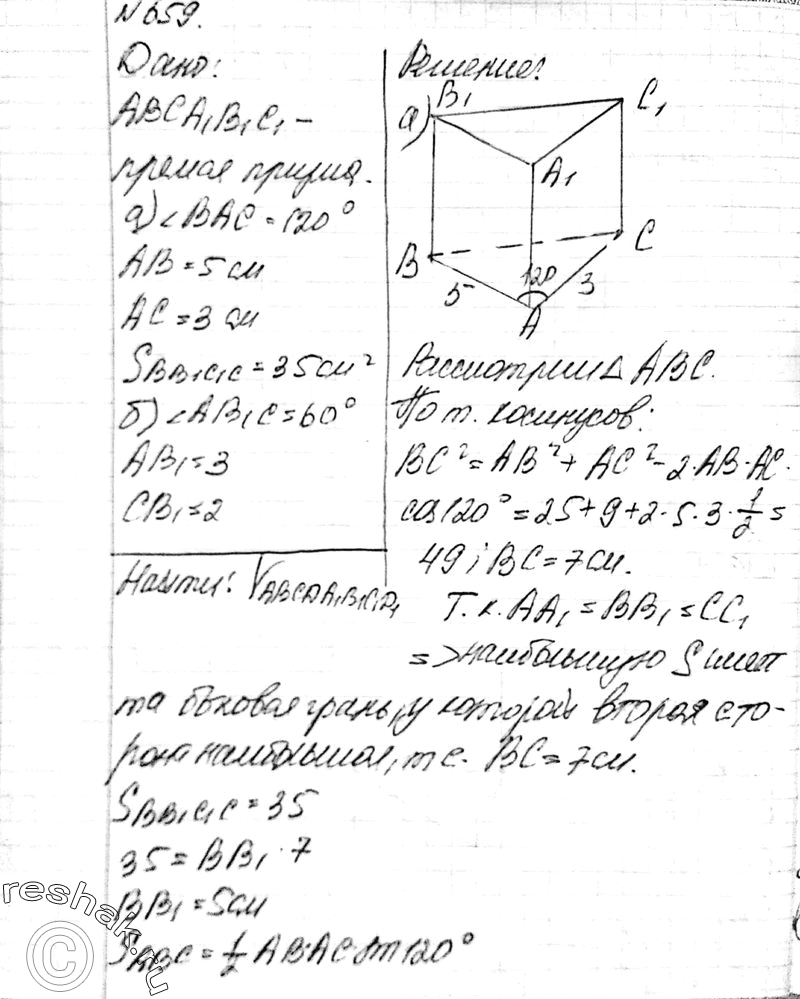 N 659.
Дано:
ABCA₁B₁C₁ –
прямая призма.
а) ∠BAC = 120°
AB = 5 см
AC = 3 см
S BB₁C₁C = 35 см²
б) ∠AB₁C = 60°
AB₁ = 3
CB₁ = 2
Найти: V ABCDA₁B₁C₁D₁
Решение:
а)
B₁
C₁
A₁
B
C
120
5
3
A
Рассмотрим △ ABC.
По т. косинусов:
BC² = AB² + AC² – 2·AB·AC·
cos 120° = 25 + 9 + 2·5·3·½ =
49; BC = 7 см.
Т.к. AA₁ = BB₁ = CC₁
=> наибольшую S имеет
та боковая грань, у которой вторая сто-
рона наибольшая, т.е. BC = 7 см.
S BB₁C₁C = 35
35 = BB₁ · 7
BB₁ = 5 см
S ABC = ½ AB·AC·sin 120°
reshak.ru
©